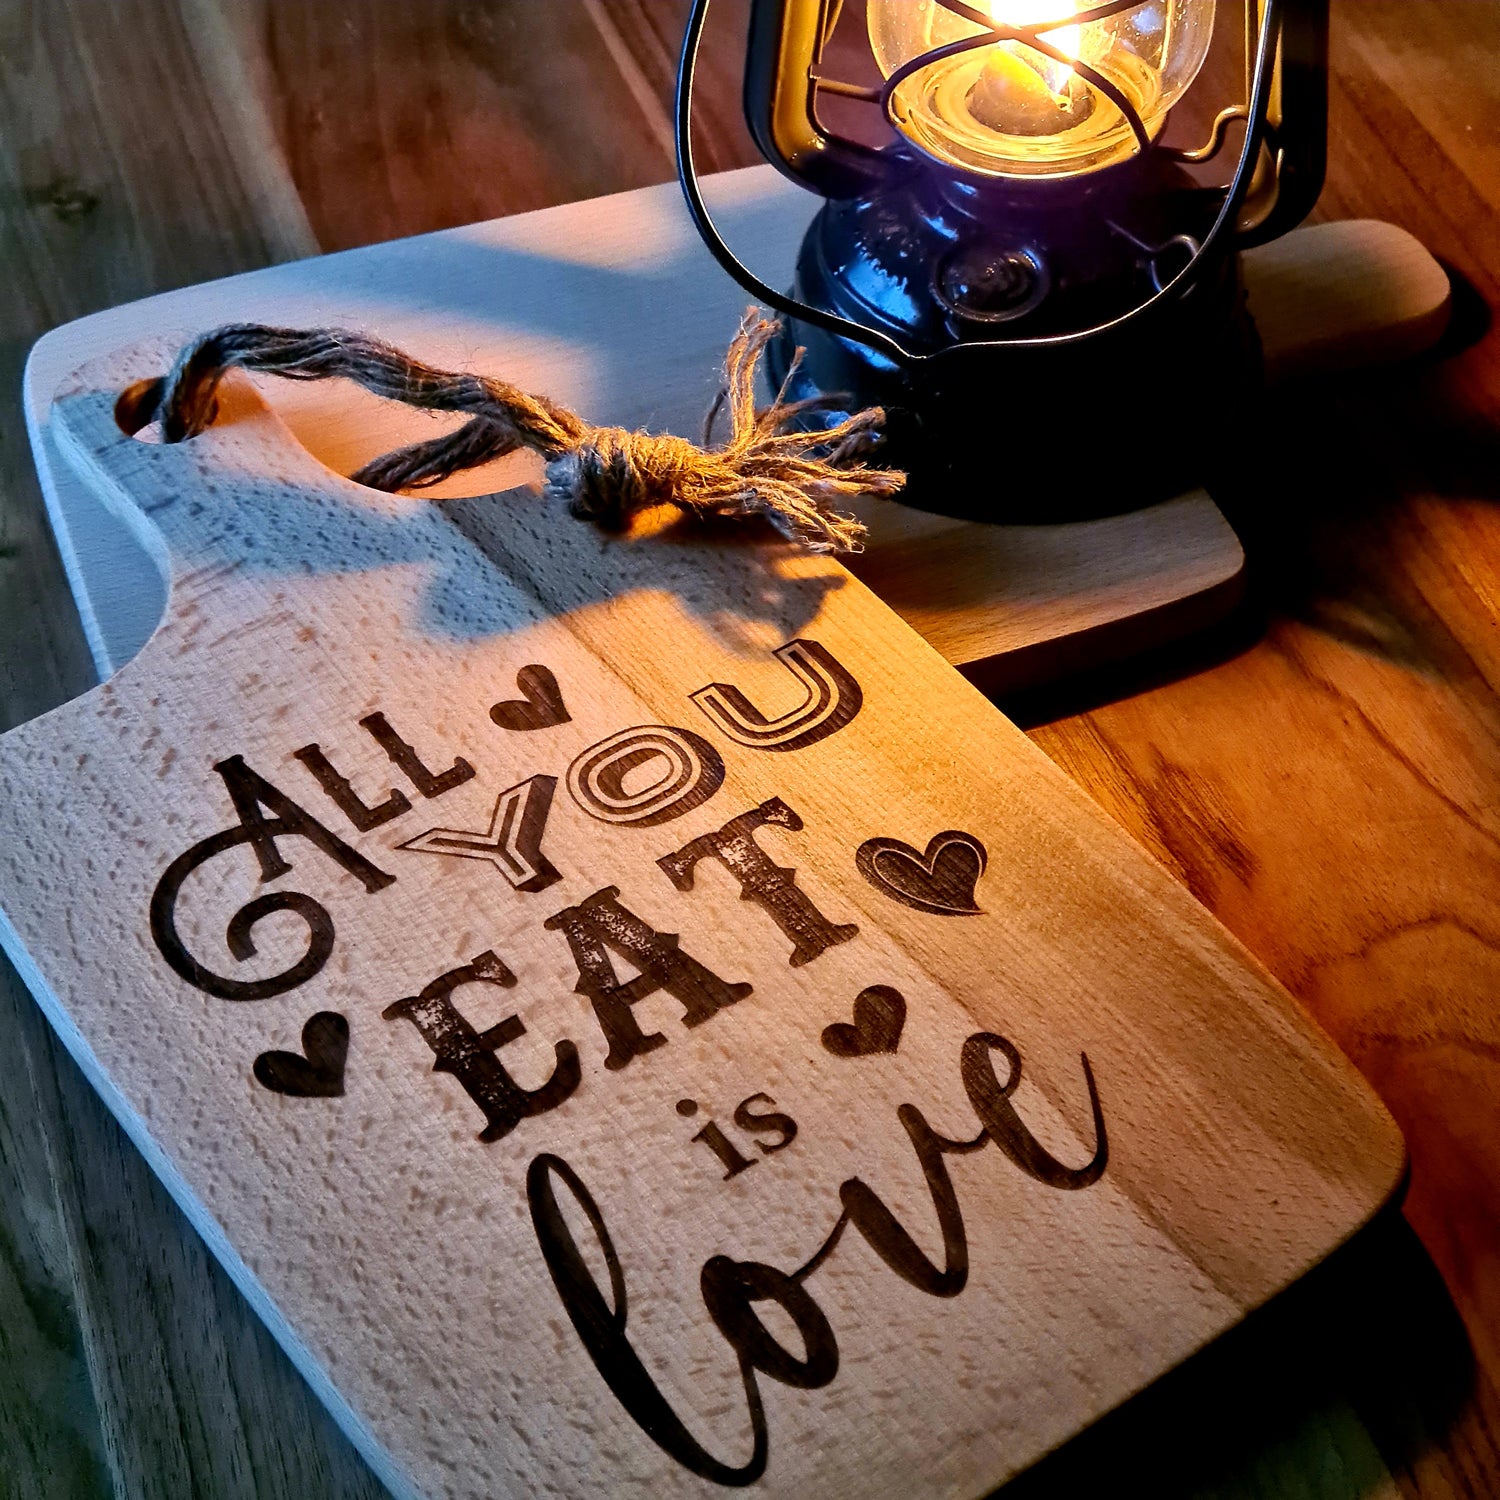 ALL
YOU
EAT
is
love